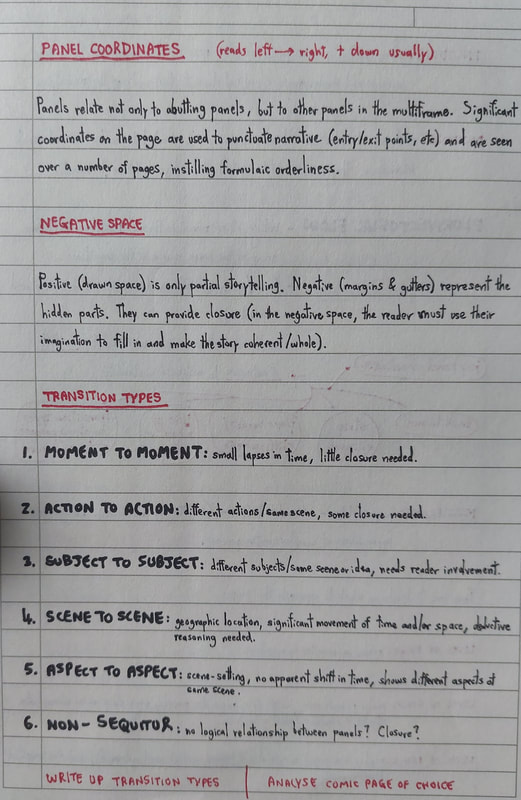 PANEL COORDINATES (reads left → right, + down usually)
Panels relate not only to abutting panels, but to other panels in the multiframe. Significant
coordinates on the page are used to punctuate narrative (entry/exit points, etc) and are seen
over a number of pages, instilling formulaic orderliness.
NEGATIVE SPACE
Positive (drawn space) is only partial storytelling. Negative (margins & gutters) represent the
hidden parts. They can provide closure (in the negative space, the reader must use their
imagination to fill in and make the story coherent/whole).
TRANSITION TYPES
1. MOMENT TO MOMENT: small lapses in time, little closure needed.
2. ACTION TO ACTION: different actions/same scene, some closure needed.
3. SUBJECT TO SUBJECT: different subjects/same scene or idea, needs reader involvement.
4. SCENE TO SCENE: geographic location, significant movement of time and/or space, deductive
reasoning needed.
5. ASPECT TO ASPECT: scene-setting, no apparent shift in time, shows different aspects of
same scene.
6. NON-SEQUITUR: no logical relationship between panels? Closure?
WRITE UP TRANSITION TYPES | ANALYSE COMIC PAGE OF CHOICE